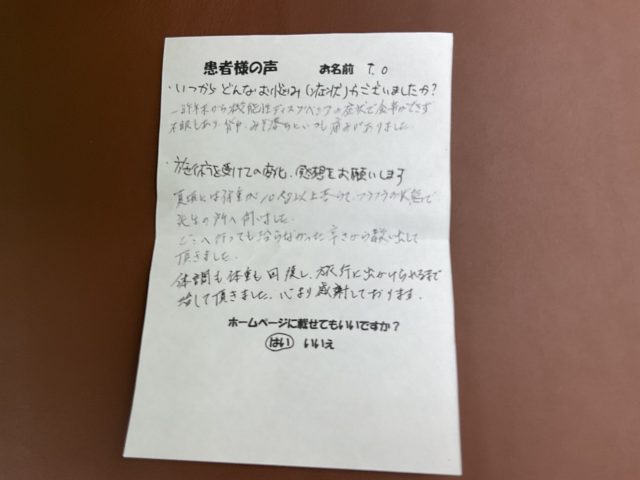 患者様の声 お名前 T.O
・いつからどんなお悩み(症状)がございましたか?
一昨年末から機能性ディスペプシアの症状で食事ができず
不眠もあり、背中、みぞおちといつも痛みがありました。
・施術を受けての変化、感想をお願いします
夏頃には体重が10kg以上落ちて、フラフラの状態で
先生の所へ伺いました。
どこへ行っても治らなかった辛さから救い出して
頂きました。
体調も体重も回復し、旅行に出かけられるまで
治して頂きました。心より感謝しております。
ホームページに載せてもいいですか?
はい いいえ